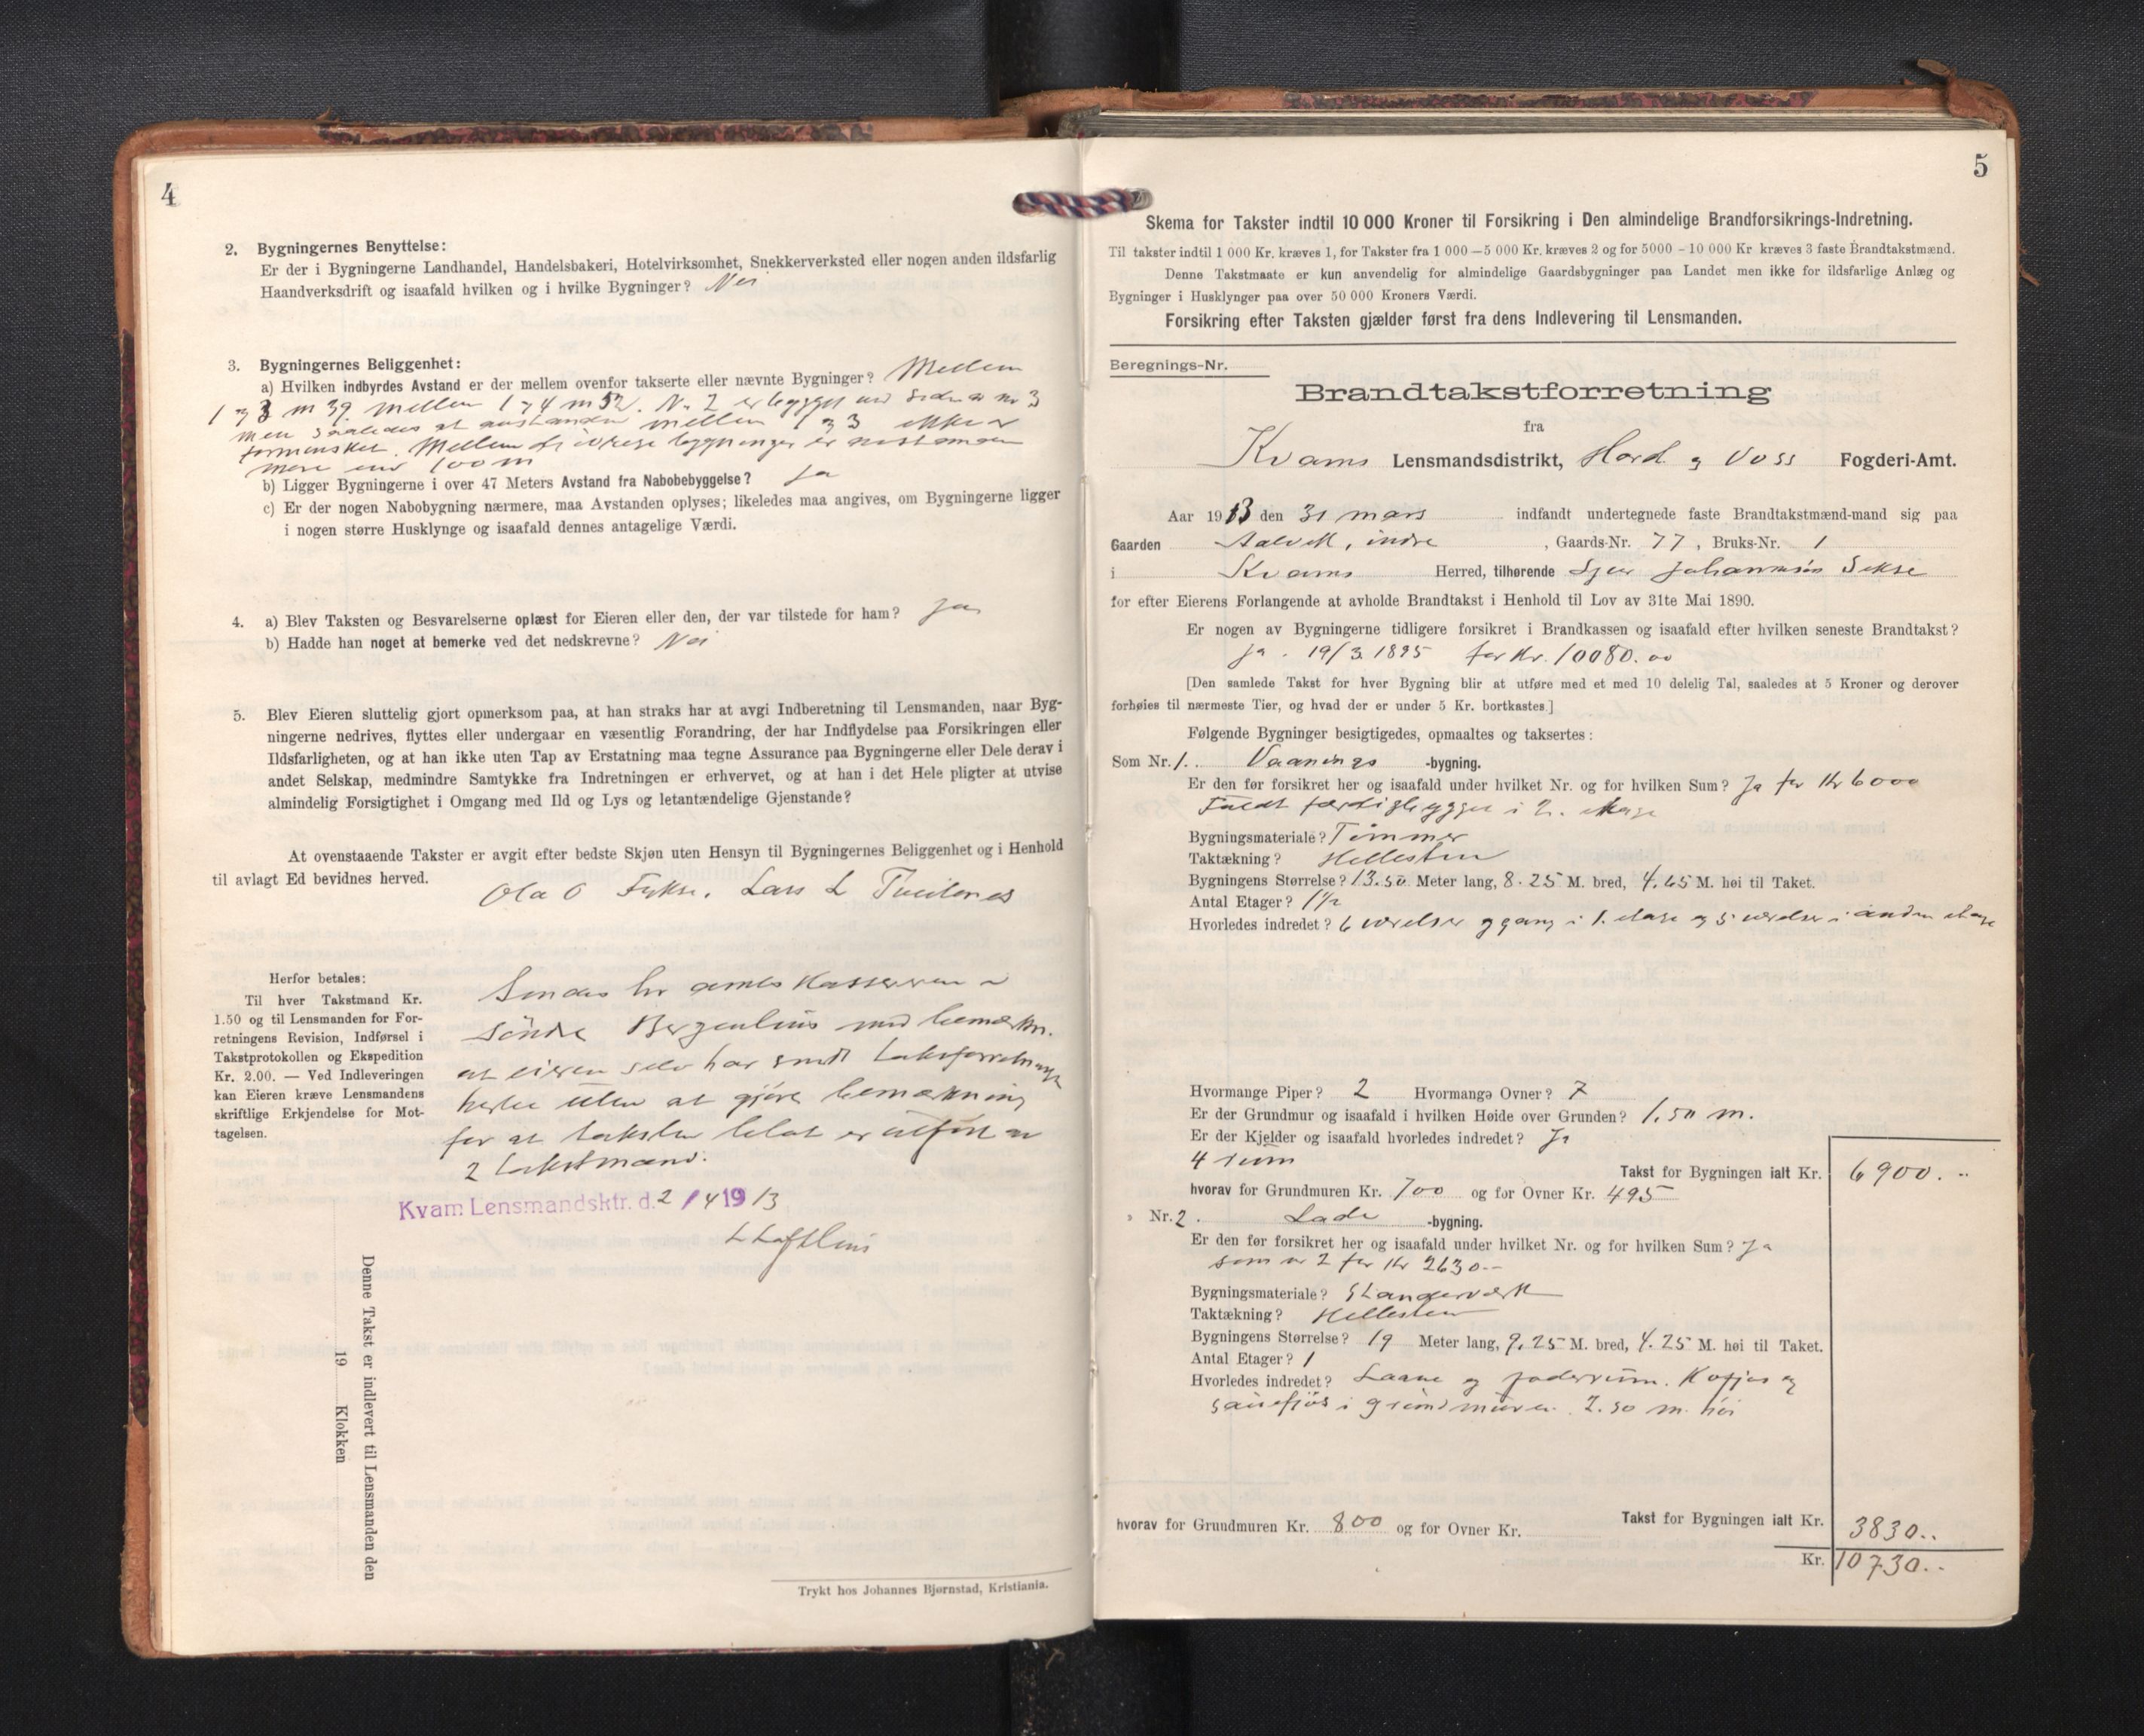 4
2. Bygningernes Benyttelse:
Er der i Bygningerne Landhandel, Handelsbakeri, Hotelvirksomhet, Snekkerverksted eller nogen anden ildsfarlig
Haandverksdrift og isaafald hvilken og i hvilke Bygninger? Nei
3. Bygningernes Beliggenhet:
a) Hvilken indbyrdes Avstand er der mellem ovenfor takserte eller nævnte Bygninger? Mellem
1 og 3 m 39. mellem 1 og 4 m 52. No 2 er bygget ved siden av nr 3
men saaledes at avstanden mellem 1 og 3 ikke er
forminsket. Mellem de övrige bygninger er avstanden
mere end 100 m
b) Ligger Bygningerne i over 47 Meters Avstand fra Nabobebyggelse? Ja
c) Er der nogen Nabobygning nærmere, maa Avstanden oplyses; likeledes maa angives, om Bygningerne ligger
i nogen større Husklynge og isaafald dennes antagelige Værdi.
4. a) Blev Taksten og Besvarelserne oplæst for Eieren eller den, der var tilstede for ham? Ja
b) Hadde han noget at bemerke ved det nedskrevne? Nei
5. Blev Eieren sluttelig gjort opmerksom paa, at han straks har at avgi Indberetning til Lensmanden, naar Byg-
ningerne nedrives, flyttes eller undergaar en væsentlig Forandring, der har Indflydelse paa Forsikringen eller
Ildsfarligheten, og at han ikke uten Tap av Erstatning maa tegne Assurance paa Bygningerne eller Dele derav i
andet Selskap, medmindre Samtykke fra Indretningen er erhvervet, og at han i det Hele pligter at utvise
almindelig Forsigtighet i Omgang med Ild og Lys og letantændelige Gjenstande?
At ovenstaaende Takster er avgit efter bedste Skjøn uten Hensyn til Bygningernes Beliggenhet og i Henhold
til avlagt Ed bevidnes herved.
Ola O Fykse. Lars L Tveitenes
Herfor betales:
Til hver Takstmand Kr.
1.50 og til Lensmanden for For-
retningens Revision, Indførsel i
Takstprotokollen og Ekspedition
Kr. 2.00. — Ved Indleveringen
kan Eieren kræve Lensmandens
skriftlige Erkjendelse for Mot-
tagelsen.
Sendes hr amtskassereren i
söndre Bergenhus med bemærkn.
at eieren selv har sendt takstforretningen
hertil uten at gjöre bemærkning
for at taksten blot er utfört av
2 takstmænd.
Kvam Lensmandsktr. d. 2/4 1913
Denne Takst er indlevert til Lensmanden den
19 Klokken
Trykt hos Johannes Bjørnstad, Kristiania.
5
Skema for Takster indtil 10 000 Kroner til Forsikring i Den almindelige Brandforsikrings-Indretning.
Til takster indtil 1 000 Kr. kræves 1, for Takster fra 1 000 — 5 000 Kr. kræves 2 og for 5000 - 10 000 Kr kræves 3 faste Brandtakstmænd.
Denne Takstmaate er kun anvendelig for almindelige Gaardsbygninger paa Landet men ikke for ildsfarlige Anlæg og
Bygninger i Husklynger paa over 50 000 Kroners Værdi.
Forsikring efter Taksten gjælder først fra dens Indlevering til Lensmanden.
Beregnings-Nr.
Brandtakstforretning
fra
Kvams Lensmandsdistrikt, Hard. og Voss Fogderi-Amt.
Aar 1913 den 31 mars indfandt undertegnede faste Brandtakstmænd-mand sig paa
Gaarden Aalvik, indre, Gaards-Nr. 77, Bruks-Nr. 1
i Kvams Herred, tilhørende Sjur Johannessön Sekse
for efter Eierens Forlangende at avholde Brandtakst i Henhold til Lov av 31te Mai 1890.
Er nogen av Bygningerne tidligere forsikret i Brandkassen og isaafald efter hvilken seneste Brandtakst?
Ja. 19/3 1895 for Kr. 10080.00
[Den samlede Takst for hver Bygning blir at utføre med et med 10 delelig Tal, saaledes at 5 Kroner og derover
forhøies til nærmeste Tier, og hvad der er under 5 Kr. bortkastes.]
Følgende Bygninger besigtigedes, opmaaltes og taksertes:
Som Nr. 1. Vaanings -bygning.
Er den før forsikret her og isaafald under hvilket Nr. og for hvilken Sum? Ja for Kr 6000
Fuldt færdigbygget i 2. etage
Bygningsmateriale? Tömmer
Taktækning? Hellesten
Bygningens Størrelse? 13.50 Meter lang, 8.25 M. bred, 4.65 M. høi til Taket.
Antal Etager? 1½
Hvorledes indredet? 6 værelser og gang i 1. etage og 5 værelser i anden etage
Hvormange Piper? 2 Hvormange Ovner? 7
Er der Grundmur og isaafald i hvilken Høide over Grunden? 1.50 m.
Er der Kjelder og isaafald hvorledes indredet? Ja
4 rum
Takst for Bygningen ialt Kr. 6900.-
hvorav for Grundmuren Kr. 700 og for Ovner Kr. 495
Nr. 2. Lade -bygning.
Er den før forsikret her og isaafald under hvilket Nr. og for hvilken Sum? Ja
som nr 2 for Kr 2630.-
Bygningsmateriale? Standerverk
Taktækning? Hellesten
Bygningens Størrelse? 19 Meter lang, 9.25 M. bred, 4.25 M. høi til Taket.
Antal Etager? 1
Hvorledes indredet? Laave og foderrum. Kofjös og
sauefjös i grundmuren. 2.50 m. höi
Takst for Bygningen ialt Kr. 3830..
hvorav for Grundmuren Kr. 800 og for Ovner Kr.
Kr. 10730..